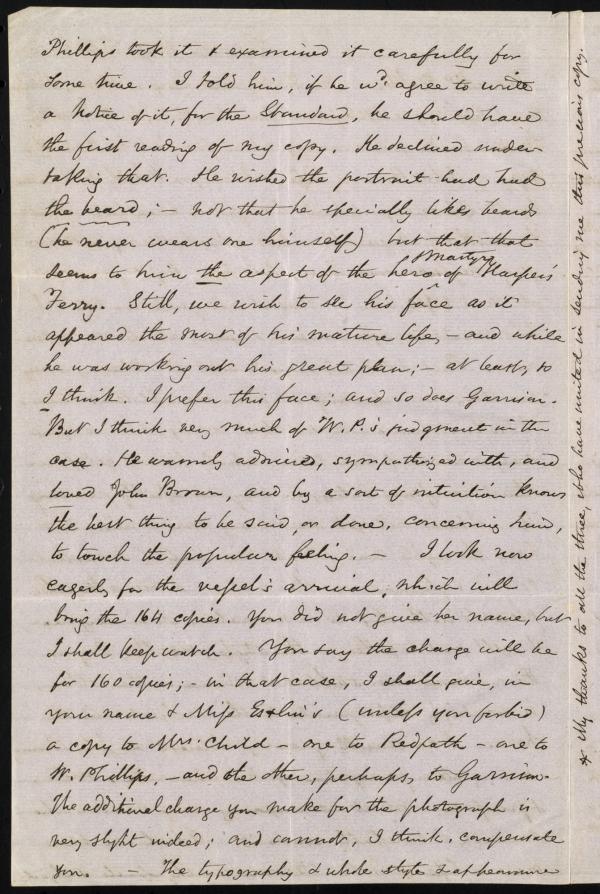 Phillips took it & examined it carefully for
some time. I told him, if he wd. agree to write
a Notice of it, for the Standard, he should have
the first reading of my copy. He declined under-
taking that. He wished the portrait had had
the beard; - not that he specially likes beards
(he never wears one himself) but that that
seems to him the aspect of the hero & martyr of Harper's
Ferry. Still, we wish to see his face as it
appeared the most of his mature life, - and while
he was working out his great plan; - at least, so
I think. I prefer this face; and so does Garrison.
But I think very much of W.P.'s judgment in the
case. He warmly admired, sympathized with, and
loved John Brown, and by a sort of intuition knows
the best thing to be said, or done, concerning him,
to touch the popular feeling. - I look now
eagerly for the vessel's arrival, which will
bring the 164 copies. You did not give her name, but
I shall keep watch. You say the charge will be
for 160 copies; - in that case, I shall give, in
your name & Miss Estlin's (unless you forbid)
a copy to Mrs. Child - one to Redpath - one to
W. Phillips, - and the other, perhaps, to Garrison.
The additional charge you make for the photograph is
very slight indeed; and cannot, I think, compensate
you. - The typography & whole style & appearance
* My thanks to all the three, who have united in sending me this precious copy.